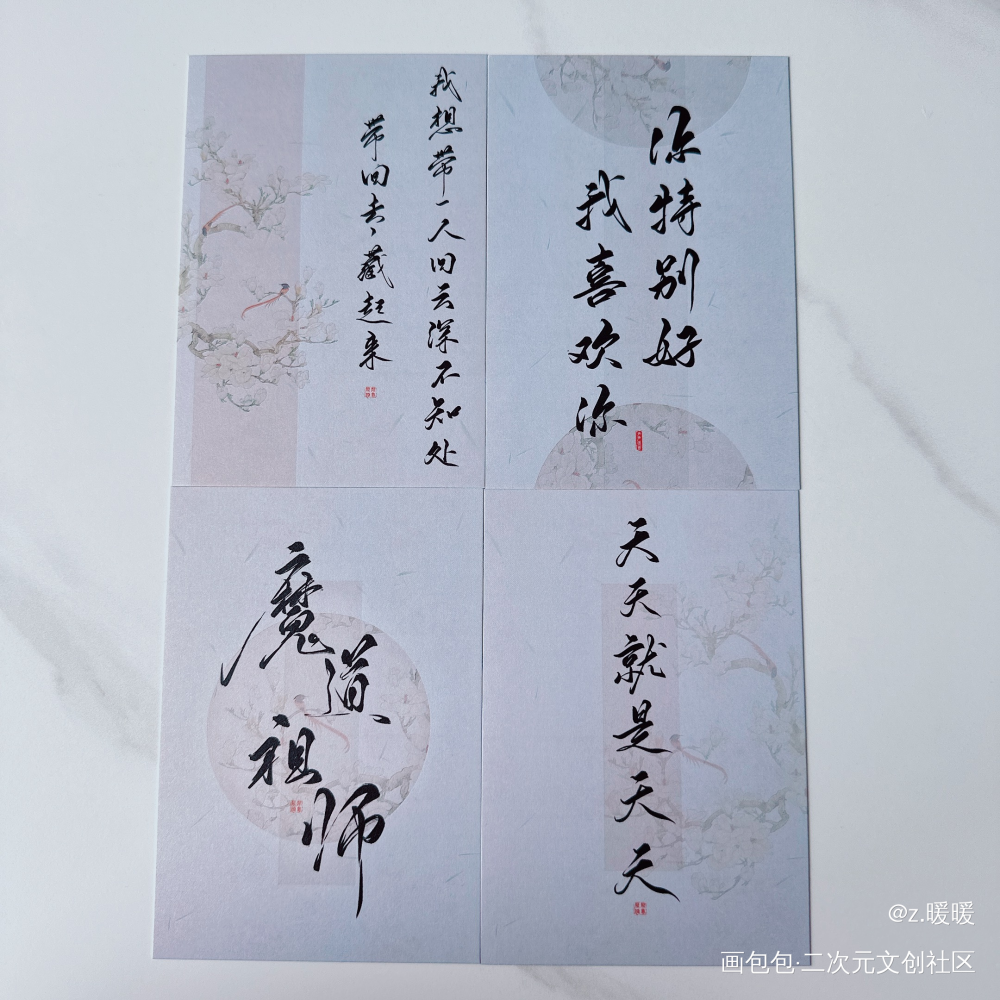 我想带一人回云深不知处
带回去，藏起来
你特别好
我喜欢你
魔道祖师
天天就是天天
@z.暖暖
画包包·二次元文创社区